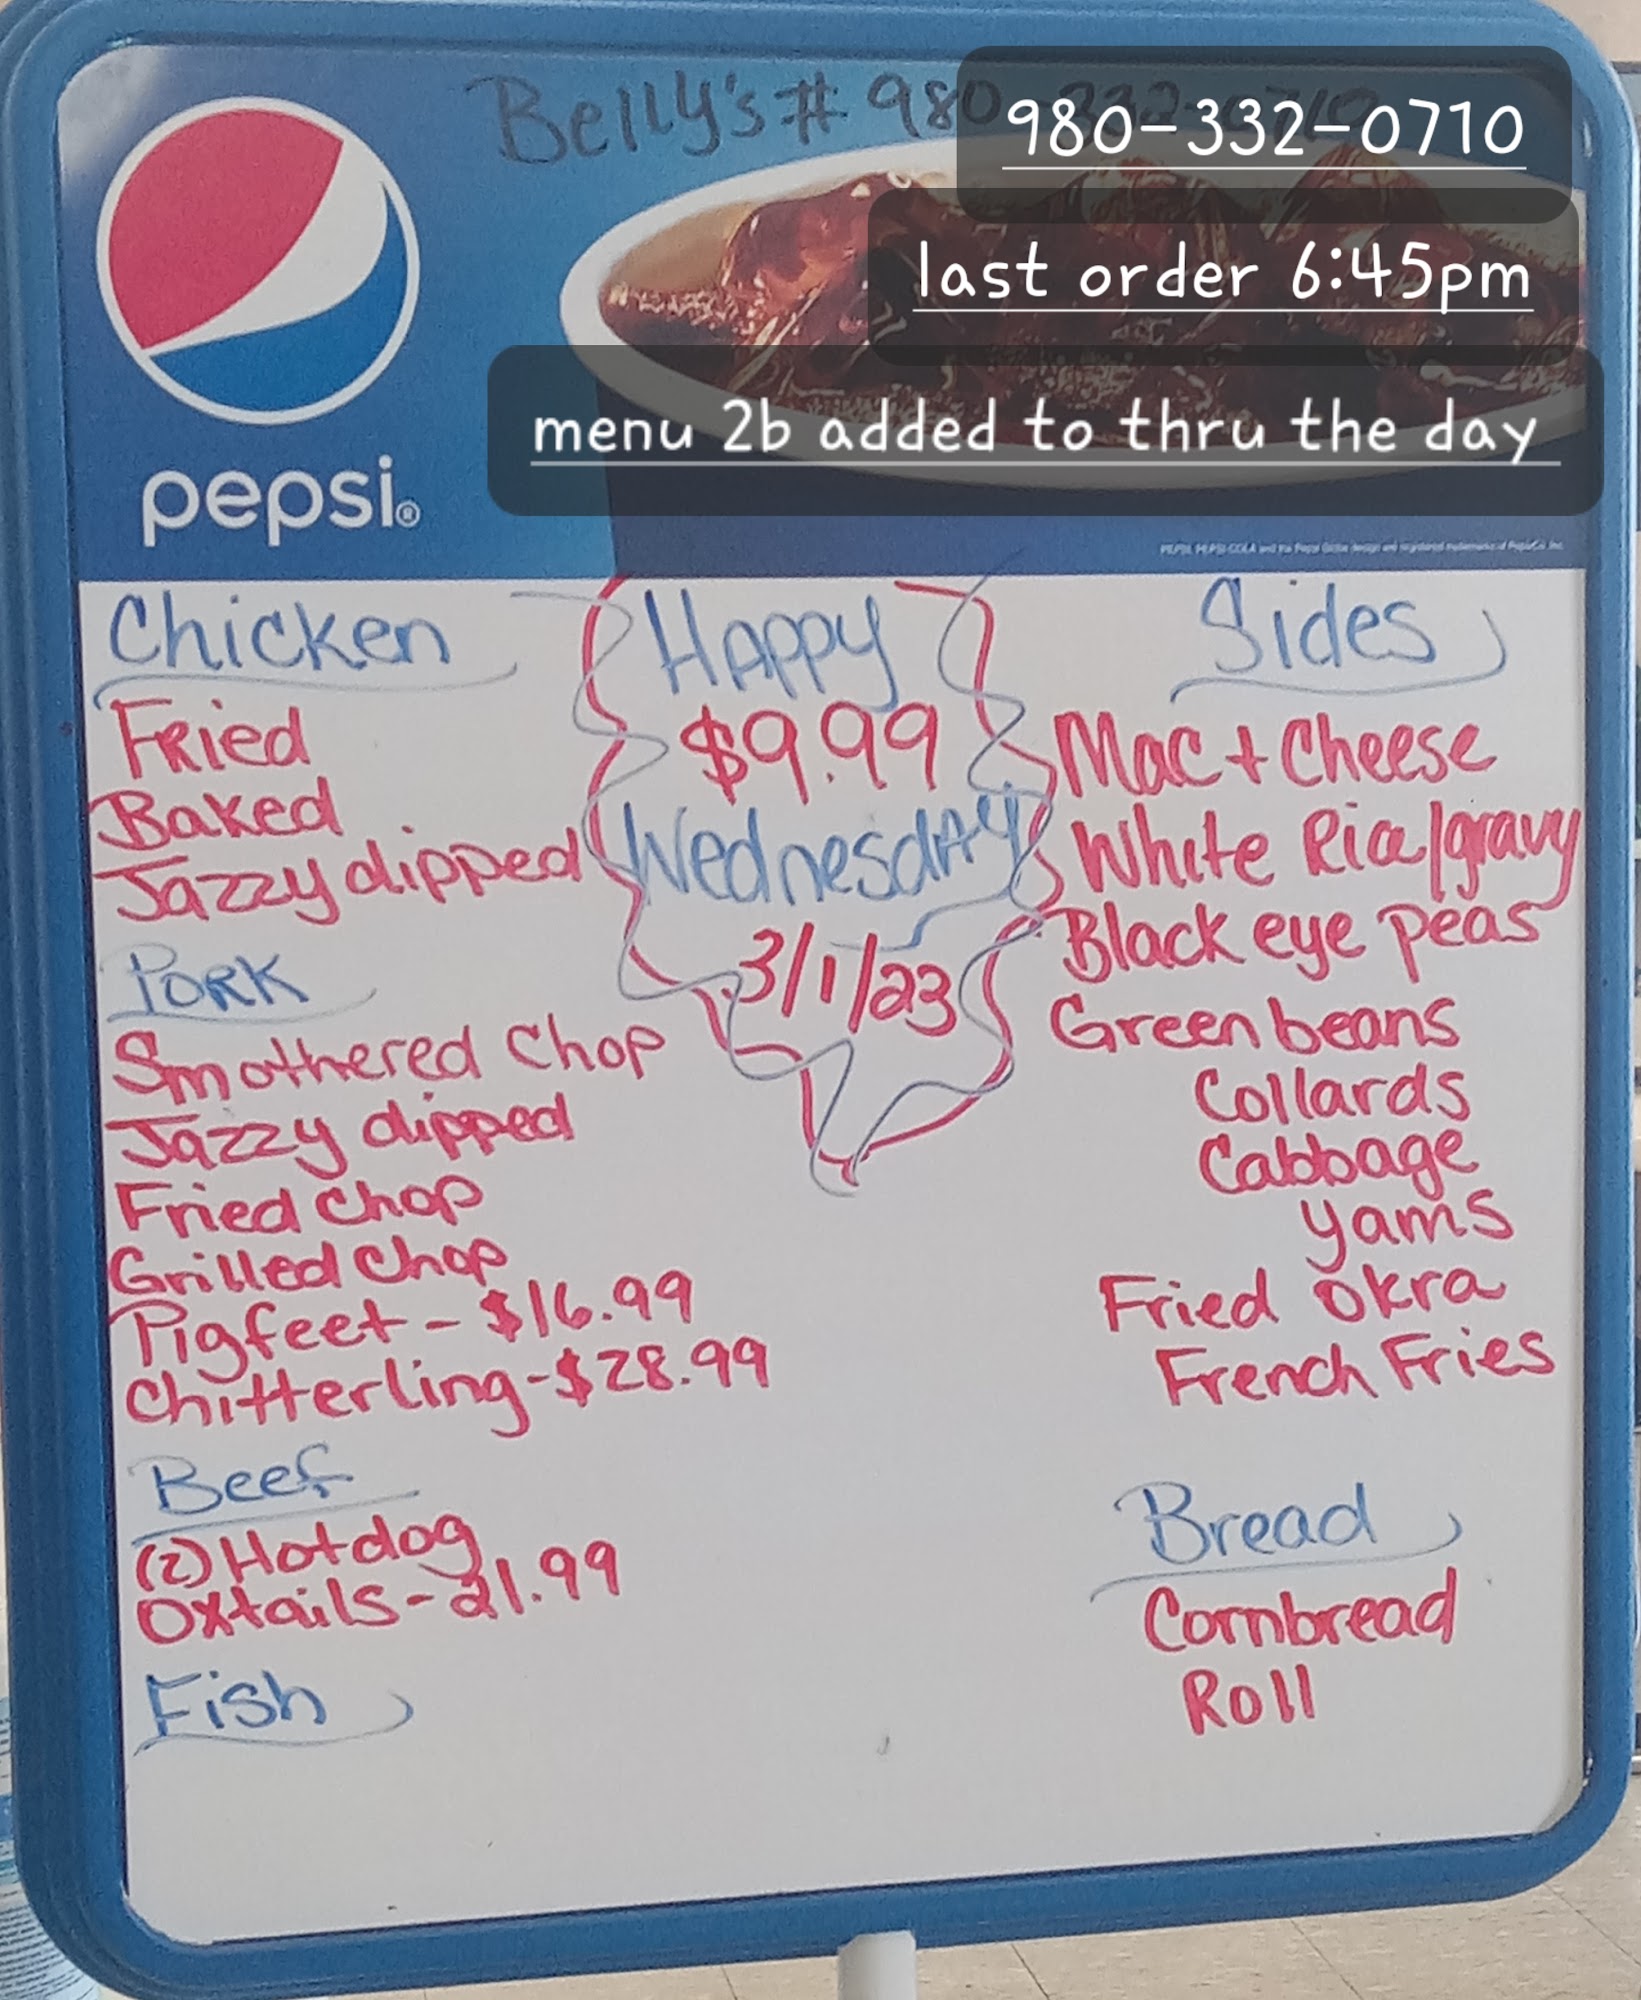 Belly's # 980-332-0710
980-332-0710
last order 6:45pm
menu 2b added to thru the day
pepsi®
PEPSI, PEPSI-COLA and the Pepsi Globe design are registered trademarks of PepsiCo, Inc.
Happy
$9.99
Wednesday
3/1/23
Chicken
Fried
Baked
Jazzy dipped
Pork
Smothered Chop
Jazzy dipped
Fried Chop
Grilled Chop
Pigfeet - $16.99
Chitterling - $28.99
Beef
(2) Hotdog
Oxtails - 21.99
Fish
Sides
Mac + Cheese
White Rice/gravy
Black eye peas
Green beans
Collards
Cabbage
yams
Fried okra
French Fries
Bread
Cornbread
Roll